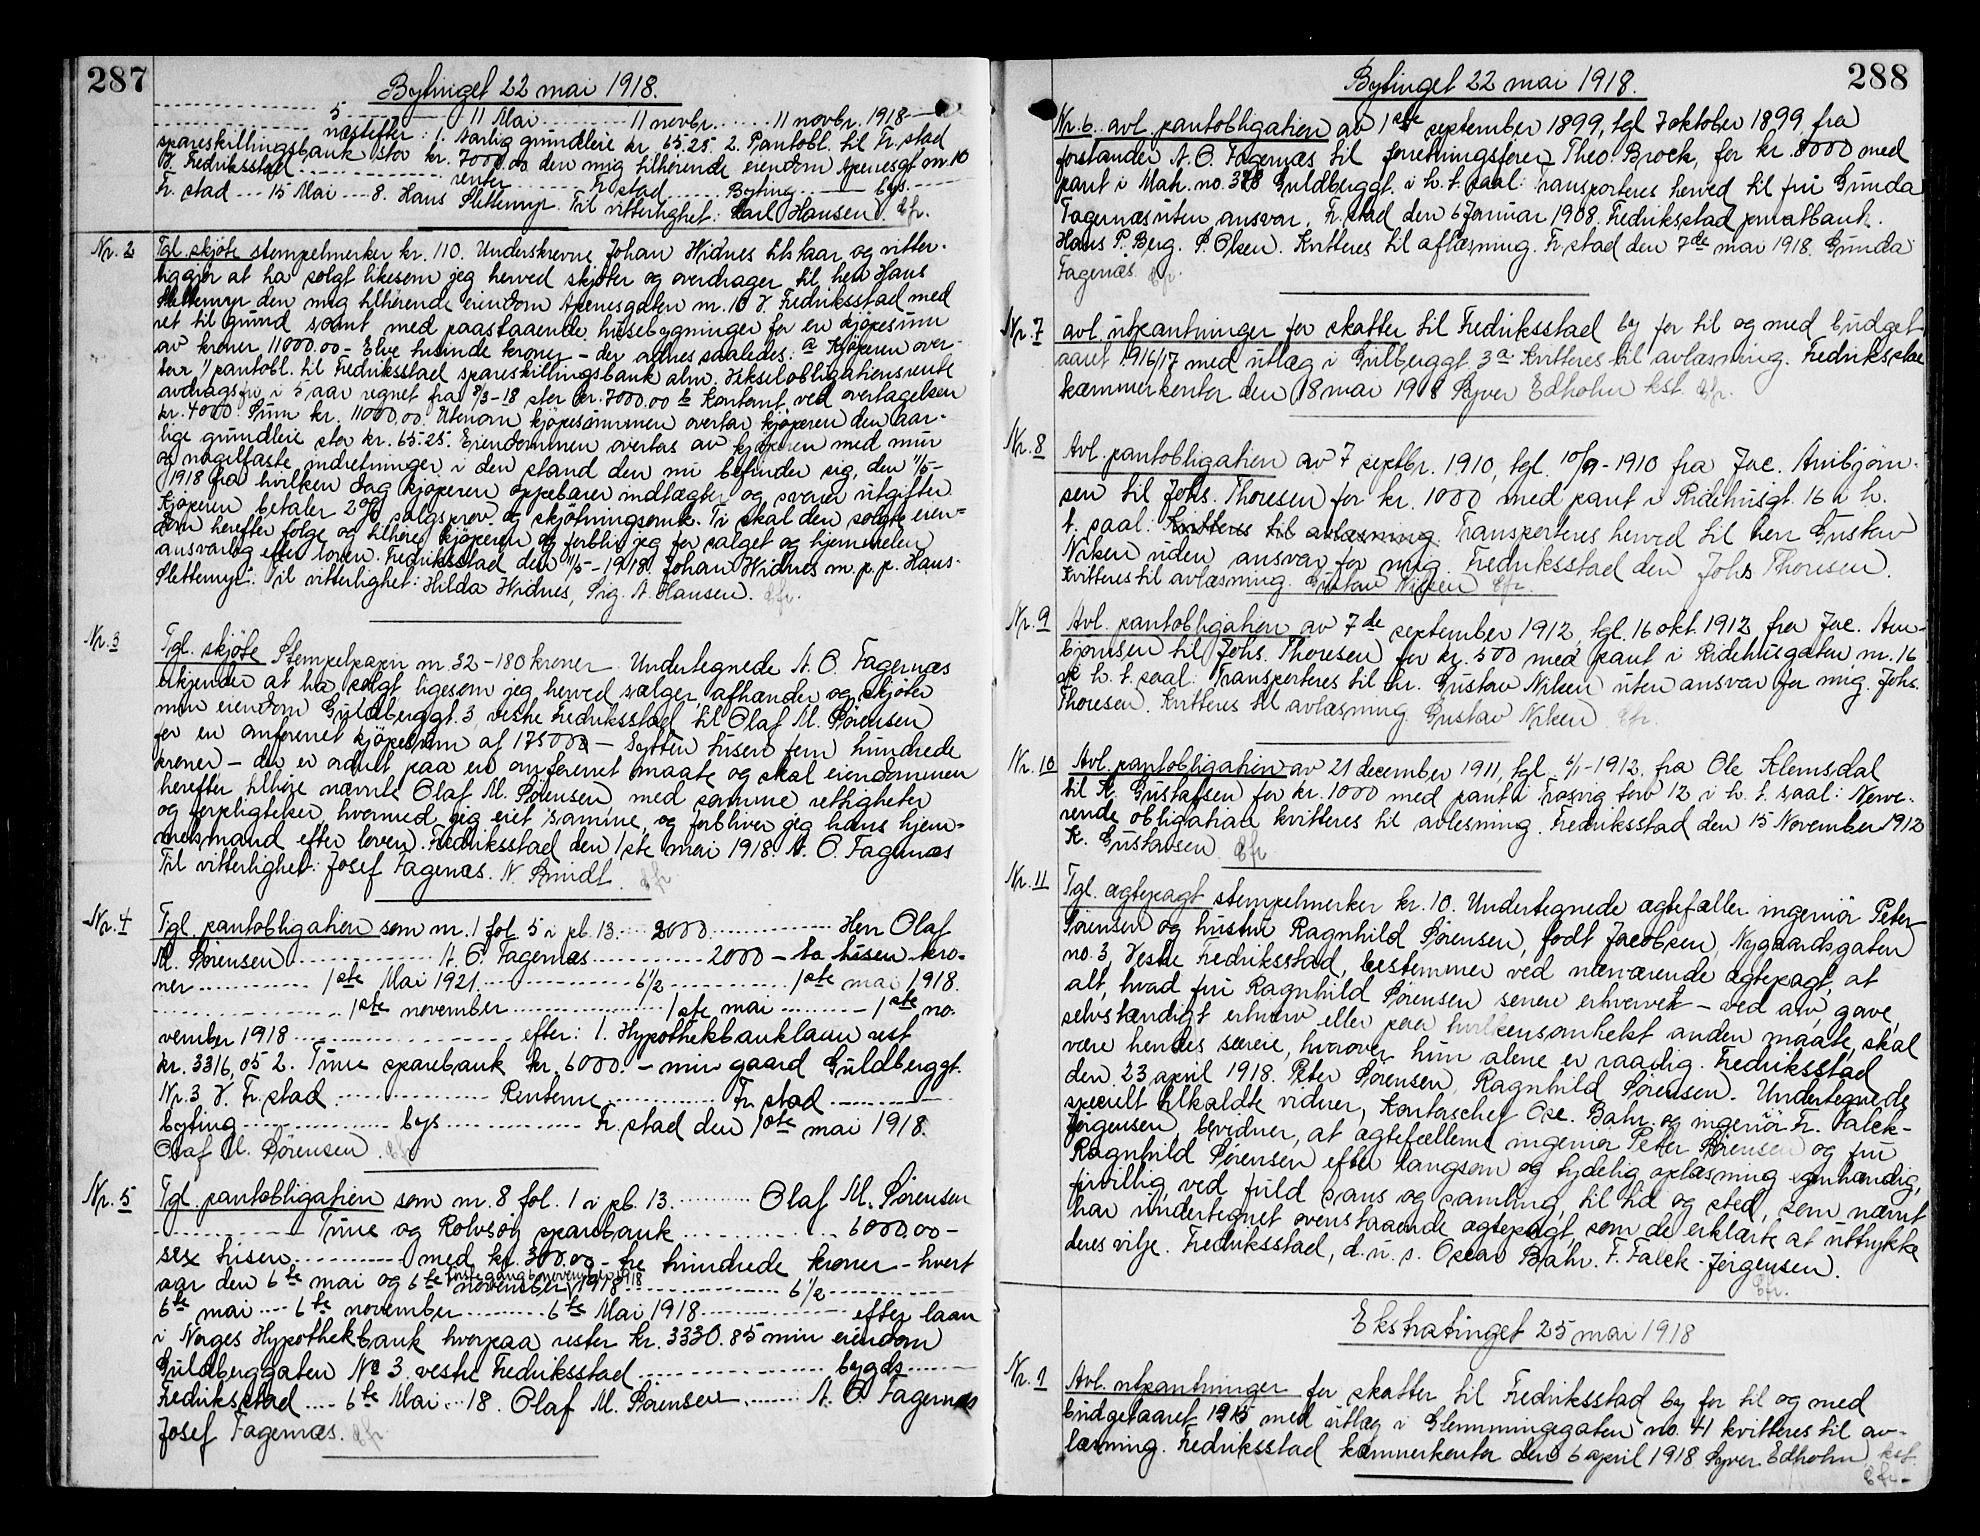 287
Bytinget 22 mai 1918.
5 11 Mai 11 novbr. 11 novbr. 1918
næstefter: 1. Aarlig grundleie kr. 65.25. 2. Pantobl. til Fr.stad
spareskillingsbank stor kr. 7000.00 den mig tilhørende eiendom Apenesgt nr. 10
V Fredriksstad renter Fr.stad Byting bys
Fr.stad 15 Mai 8. Hans Slettemyr. Til vitterlighet: Karl Hansen. Efr.
Nr. 2 Tgl. skjöte stempelmerker kr. 110. Underskrevne Johan Hidnes tilstaar og vitter-
liggjör at ha solgt likesom jeg herved skjöter og overdrager til herr Hans
Slettemyr den mig tilhörende eiendom Apenesgaten nr. 10 V. Fredriksstad med
ret til grund samt med paastaaende husebygninger for en kjöpesum
av kroner 11000.00 – Elve tusinde kroner – der avgjöres saaledes: a Kjöperen over-
tar 1 pantobl. til Fredriksstad spareskillingsbank alm. vekselobligationsrente
avdragsfri i 5 aar regnet fra 8/3-18 stor kr. 7000.00 b Kontant ved overtagelsen
kr. 4000. Sum kr. 11000.00. Utenom kjöpesummen overtar kjöperen den aar-
lige grundleie stor kr. 65.25. Eiendommen overtas av kjöperen med mur
og nagelfaste indretninger i den stand den nu befinder sig, den 11/5-
1918 fra hvilken dag kjöperen oppebærer indtægter og svarer utgifter.
Kjöperen betaler 2% salgsprov. og skjötningsomk. Ti skal den solgte eien-
dom herefter følge og tilhöre kjöperen og forblir jeg for salget og hjemmelen
ansvarlig efter loven. Fredriksstad den 11/5-1918. Johan Hidnes m.p.p. Hans
Slettemyr. Til vitterlighet: Hilda Hidnes, Sig. A. Hansen. Efr.
Nr. 3 Tgl. skjöte Stempelpapir nr. 32 – 180 kroner. Undertegnede A. O. Fagernæs
erkjender at ha solgt ligesom jeg herved sælger, afhænder og skjöter
min eiendom Guldberggt. 3 vestre Fredriksstad til Olaf M. Sörensen
for en omforenet kjöpesum af 17500 – Sytten tusen fem hundrede
kroner – der er ordnet paa en omforenet maate og skal eiendommen
herefter tilhöre nævnte Olaf M. Sörensen med samme rettigheter
og forpligtelser hvormed jeg eiet samme, og forbliver jeg hans hjem-
melsmand efter loven. Fredriksstad den 1ste mai 1918. A. O. Fagernæs
Til vitterlighet: Josef Fagernæs. N. Brundt. Efr.
Nr. 4 Tgl. pantobligation som nr. 1 fol. 5 i pb. 13 2000 Herr Olaf
M. Sörensen A. O. Fagernæs 2000 – to tusen kro-
ner 1ste Mai 1921 6 1/2 1ste mai 1918.
1ste november 1ste mai 1ste no-
vember 1918 efter: 1. Hypothekbanklaan rest
kr. 3316,05 2. Tune sparebank kr. 6000. – min gaard Guldberggt.
Nr. 3 V. Fr.stad Renterne Fr.stad
byting bys Fr.stad den 1ste mai 1918.
Olaf M. Sörensen. Efr.
Nr. 5 Tgl. pantobligation som nr. 8 fol. 1 i pb. 13. Olaf M. Sörensen
Tune og Rolvsöy sparebank 6000.00 –
sex tusen med kr. 300.00 – tre hundrede kroner – hvert
förste gang 6 november 1918
aar den 6te mai og 6te november 1918 6 1/2
6te mai 6te november 6te Mai 1918 efter laan
i Norges Hypothekbank hvorpaa rester kr. 3330.85 min eiendom
Guldberggaten No 3 vestre Fredriksstad bygds
Fredriksstad 6te Mai 18. Olaf M. Sörensen A. O. Fagernæs
Josef Fagernæs. Efr.
288
Bytinget 22 mai 1918.
Nr. 6. avl. pantobligation av 1ste september 1899, tgl. 7 oktober 1899 fra
forstander A. O. Fagernæs til forretningsförer Theo. Brock, for kr. 8000 med
pant i Mat. no. 378 Guldberggt. i h. t. saal: Transporteres herved til fru Gunda
Fagernæs uten ansvar. Fr.stad den 6 Januar 1908. Fredriksstad privatbank.
Hans P. Berg. P. Olsen. Kvitteres til aflæsning. Fr.stad den 7de mai 1918. Gunda
Fagernæs. Efr.
Nr. 7 avl. utpantninger for skatter til Fredriksstad by for til og med budget-
aaret 1916/17 med utlæg i Gulberggt. 3a kvitteres til avlæsning. Fredriksstad
kæmnerkontor den 18 mai 1918 Syver Edholm kst. Efr.
Nr. 8 Avl. pantobligation av 7 septbr. 1910, tgl. 10/9-1910 fra Jac. Arnbjörn-
sen til Johs. Thoresen for kr. 1000 med pant i Ridehusgt. 16 i h.
t. saal: Kvitteres til avlæsning. Transporteres herved til herr Gustav
Nilsen uden ansvar for mig. Fredriksstad den Johs Thoresen.
Kvitteres til avlæsning. Gustav Nilsen Efr.
Nr. 9 Avl. pantobligation av 7de september 1912, tgl. 16 okt. 1912 fra Jac. Arn-
björnsen til Johs. Thoresen for kr. 500 med pant i Ridehusgaten nr. 16
i h. t. saal: Transporteres til hr. Gustav Nilsen uten ansvar for mig. Johs.
Thoresen. Kvitteres til avlæsning. Gustav Nilsen. Efr.
Nr. 10 Avl. pantobligation av 21 december 1911, tgl. 6/1-1912. fra Ole Klemsdal
til K. Gustafsen for kr. 1000 med pant i Trosvig terv 12 i h. t. saal: Nærvæ-
rende obligation kvitteres til avlesning. Fredriksstad den 15 November 1912
K. Gustavsen Efr.
Nr. 11 Tgl. ægtepagt stempelmerker kr. 10. Undertegnede ægtefæller ingeniör Peter
Sörensen og hustru Ragnhild Sörensen, födt Jacobsen, Nygaardsgaten
no. 3, Vestre Fredriksstad, bestemmer ved nærværende ægtepagt, at
alt, hvad fru Ragnhild Sörensen senere erhvervet – ved arv, gave,
selvstændigt erhverv eller paa hvilkensomhelst anden maate, skal
være hendes særeie, hvorover hun alene er raadig. Fredriksstad
den 23 april 1918. Peter Sörensen, Ragnhild Sörensen. Undertegnede
specielt tilkaldte vidner, Kontorchef Osc. Bahr og ingeniör Fr. Falck-
Jörgensen bevidner, at ægtefællerne ingeniör Peter Sörensen og fru
Ragnhild Sörensen efter langsom og tydelig oplæsning egenhændig,
frivillig, ved fuld sans og samling, til tid og sted, som nævnt
har undertegnet ovenstaaende ægtepagt, som de erklærte at uttrykke
deres vilje. Fredriksstad, d. u. s. Oscar Bahr. F. Falck-Jørgensen.
Efr.
Ekstratinget 25 mai 1918
Nr. 1 Avl. utpantninger for skatter til Fredriksstad by for til og med
budgetaaret 1915 med utlæg i Glemmingegaten no. 41 kvitteres til av-
læsning. Fredriksstad kæmnerkontor den 6 april 1918 Syver Edholm kst.
Efr.